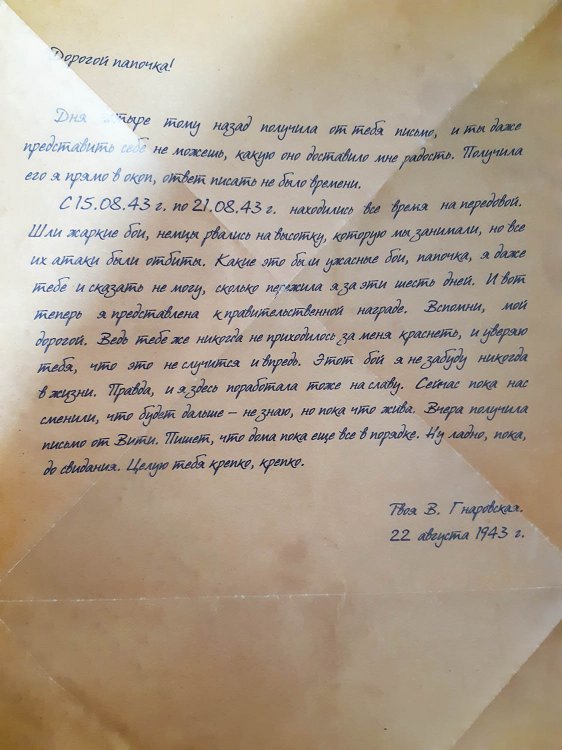 Дорогой папочка!
Дня четыре тому назад получила от тебя письмо, и ты даже
представить себе не можешь, какую оно доставило мне радость. Получила
его я прямо в окоп, ответ писать не было времени.
С 15.08.43 г. по 21.08.43 г. находились все время на передовой.
Шли жаркие бои, немцы рвались на высотку, которую мы занимали, но все
их атаки были отбиты. Какие это были ужасные бои, папочка, я даже
тебе и сказать не могу, сколько пережила я за эти шесть дней. И вот
теперь я представлена к правительственной награде. Вспомни, мой
дорогой. Ведь тебе же никогда не приходилось за меня краснеть, и уверяю
тебя, что это не случится и впредь. Этот бой я не забуду никогда
в жизни. Правда, и я здесь поработала тоже на славу. Сейчас пока нас
сменили, что будет дальше – не знаю, но пока что жива. Вчера получила
письмо от Вити. Пишет, что дома пока еще все в порядке. Ну ладно, пока,
до свидания. Целую тебя крепко, крепко.
Твоя В. Гнаровская.
22 августа 1943 г.